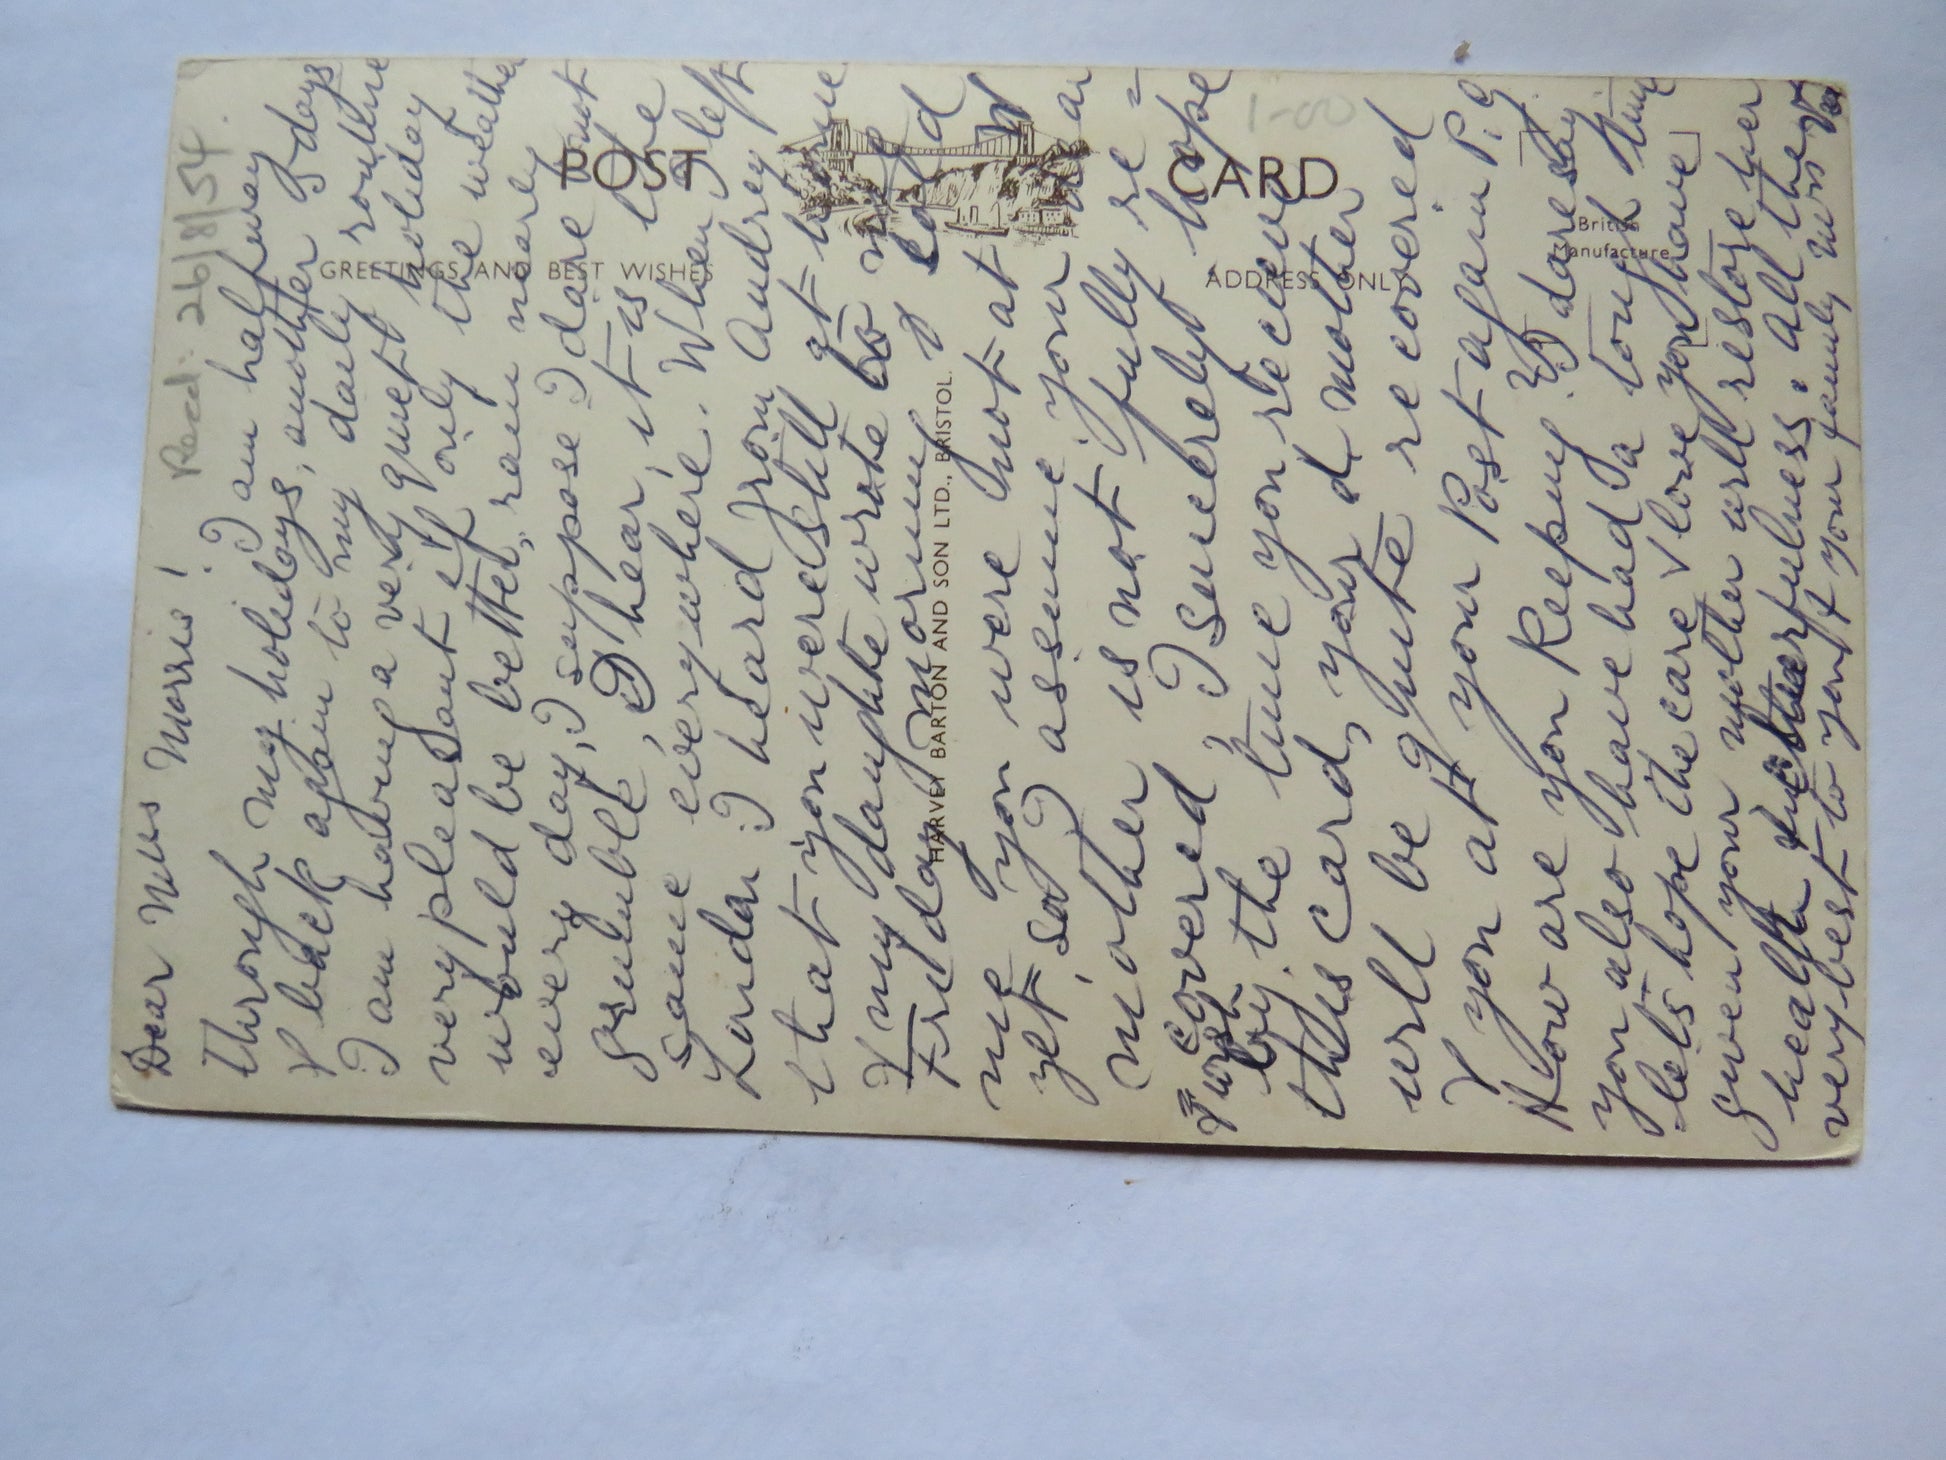 POST CARD
GREETINGS AND BEST WISHES
ADDRESS ONLY
British
Manufacture
HARVEY BARTON AND SON LTD., BRISTOL.
1-00
Recd. 26/8/54.
Dear Miss Morris!
I am halfway
through my holidays, another 5 days
& back again to my daily routine
I am having a very quiet holiday
very pleasant if only the weather
would be better, rain nearly
every day, I suppose I dare not
grumble, I hear, it is the
same everywhere. When I left
London I heard from Audrey
that you were still at home
& my daughter wrote to me
Friday morning & told
me you were not at
yet, so I assume your dear
mother is not fully re =
= covered? I sincerely hope
& wish
by the time you receive
this card, your d. mother
will be quite recovered
& you at your Post again P.G.
How are you keeping? I daresay
you also have had a tough time
lets hope the care & love you have
given your mother will restore her
health & cheerfulness. All the
very best to you & your family Mrs